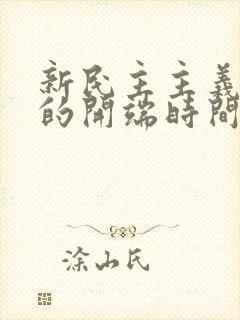 新民主主義
的開端時間
涂山氏